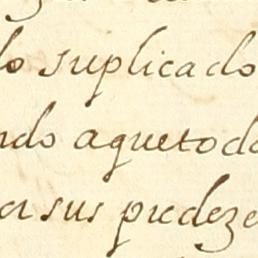 lo suplicado
ndo aquetodo
er sus predeze